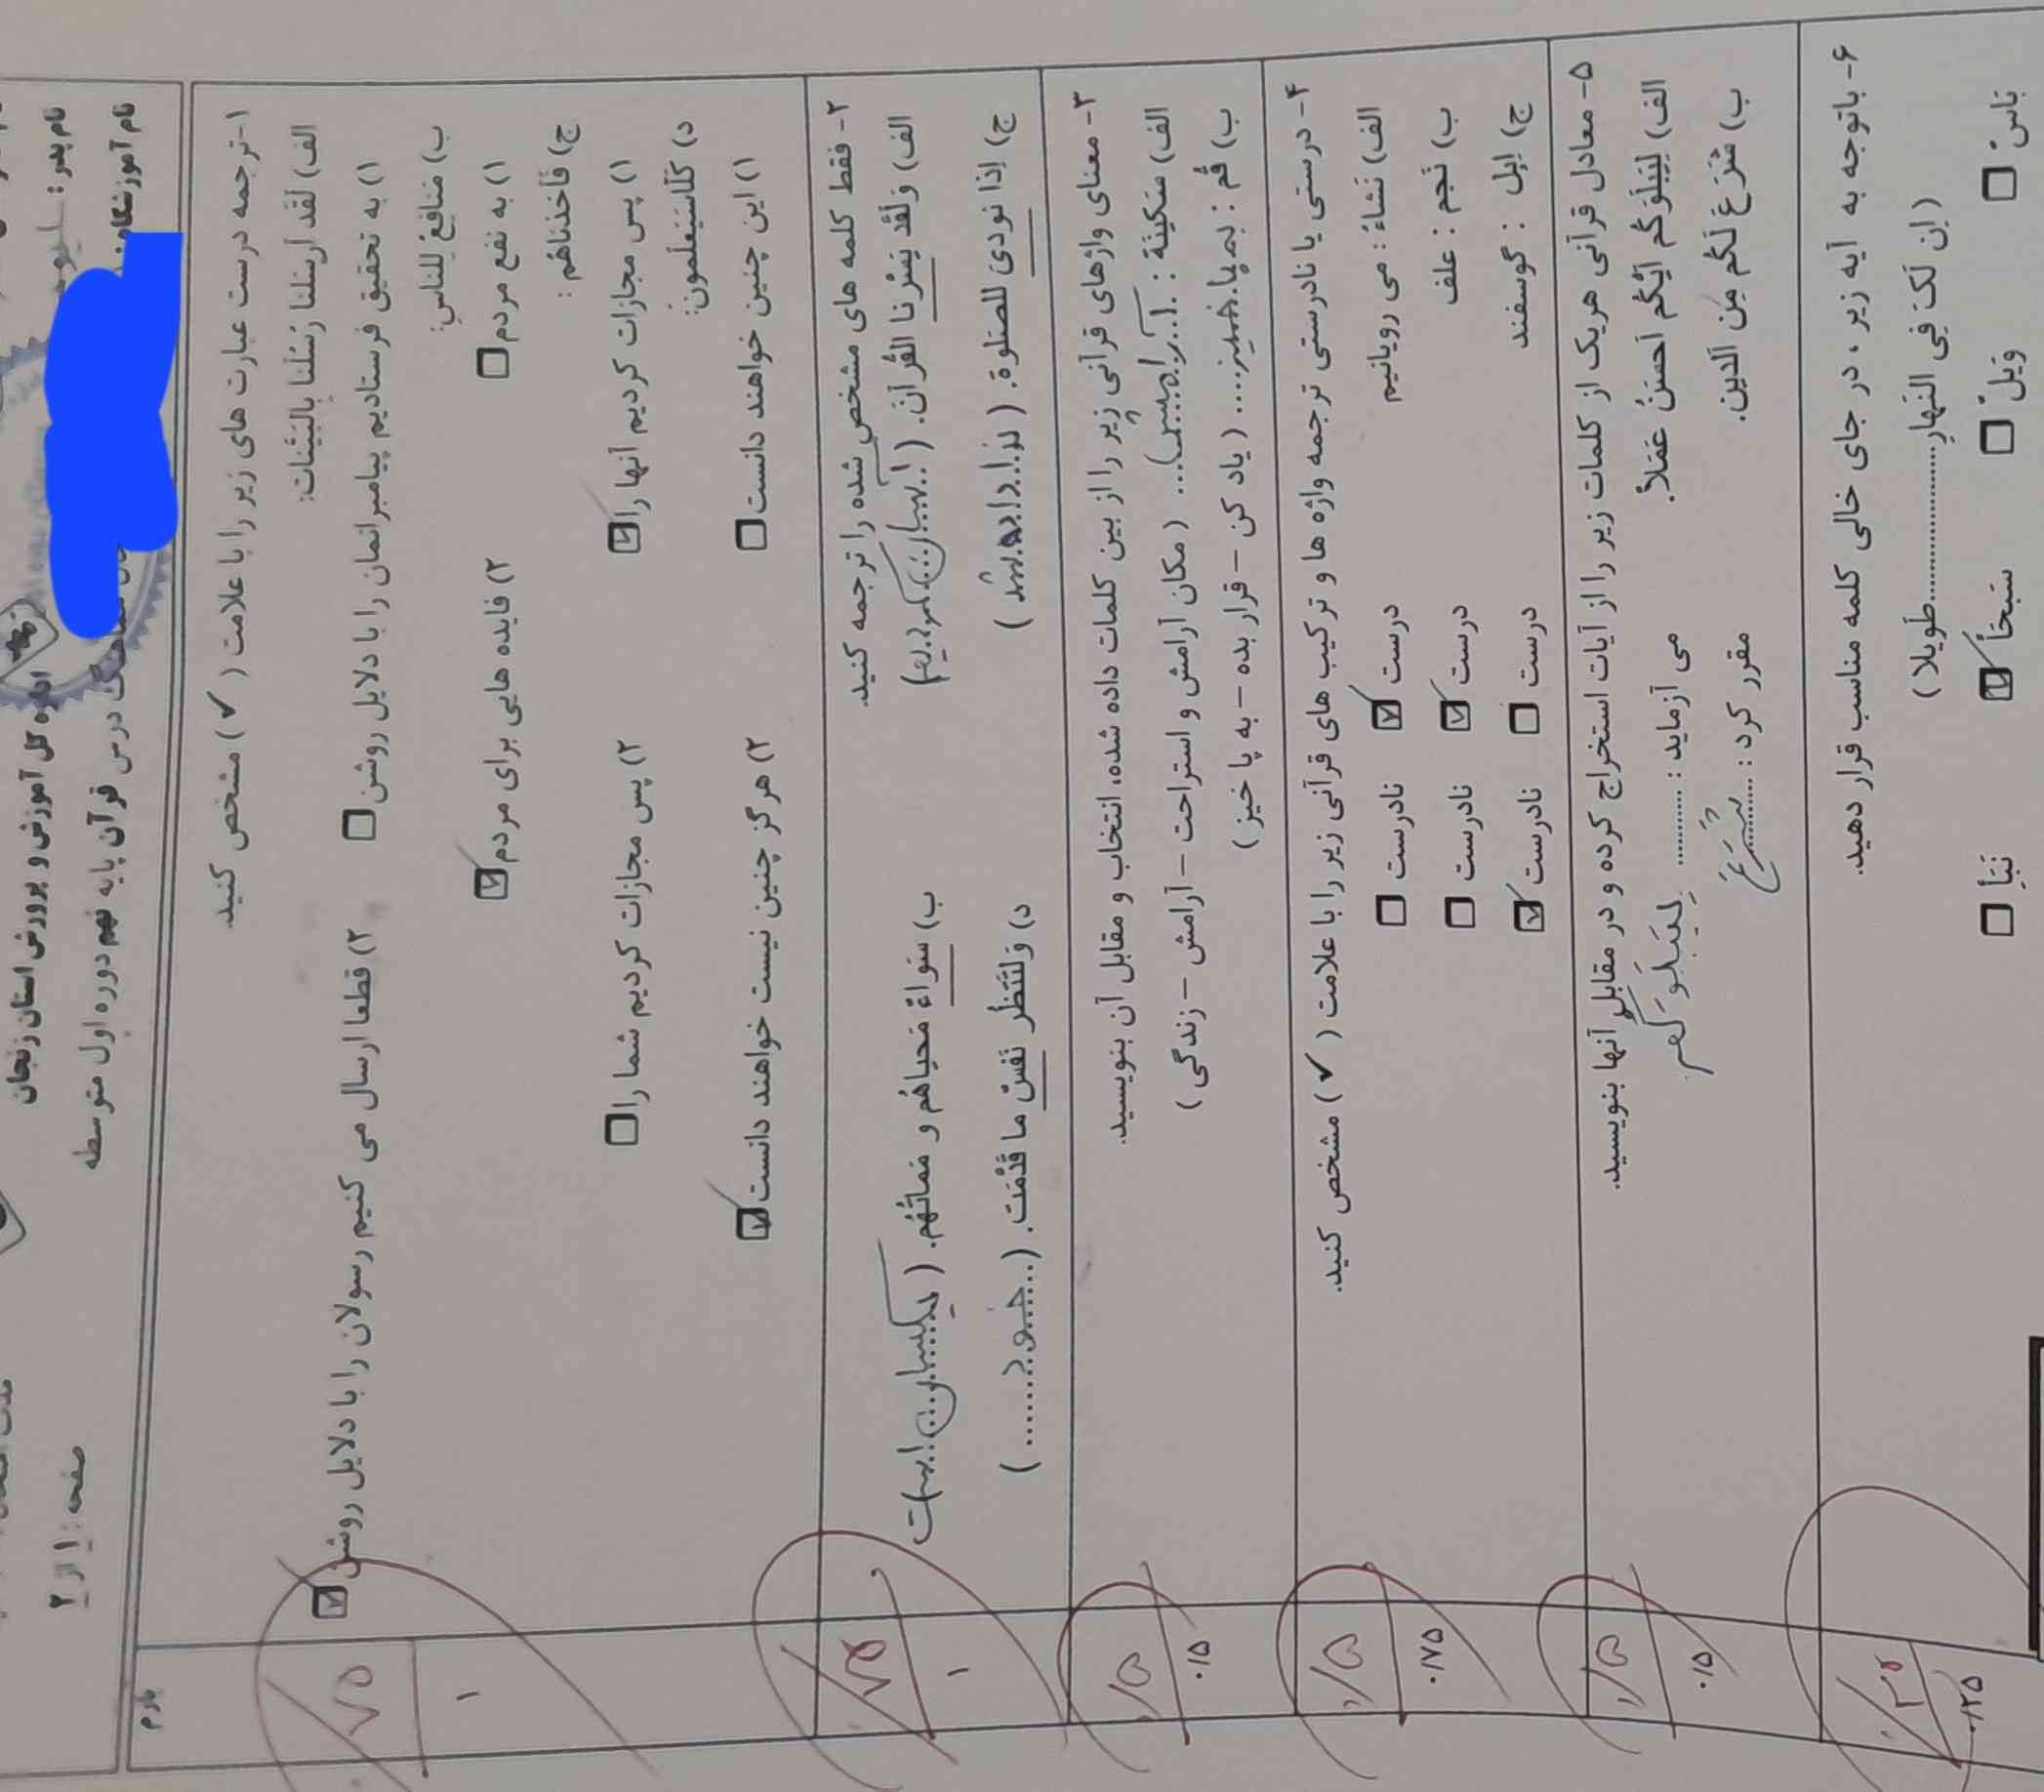 نام آموزشگاه:
نام پدر:
اداره کل آموزش و پرورش استان زنجان
درس قرآن پایه نهم دوره اول متوسطه
صفحه: ۱ از ۲
بارم
۱-ترجمه درست عبارت های زیر را با علامت ( ✔ ) مشخص کنید.
الف) لَقَد اَرسَلنا رُسُلَنا بِالبَیِّنات:
۱) به تحقیق فرستادیم پیامبرانمان را با دلایل روشن ☐ ۲) قطعا ارسال می کنیم رسولان را با دلایل روشن ☑
ب) مَنافِعُ لِلناسِ:
۱) به نفع مردم ☐ ۲) فایده هایی برای مردم ☑
ج) فَاَخَذناهُم :
۱) پس مجازات کردیم آنها را ☑ ۲) پس مجازات کردیم شما را ☐
د) کَلّاسَیَعلَمونَ:
۱) این چنین خواهند دانست ☐ ۲) هرگز چنین نیست خواهند دانست ☑
/۷۵
۱
۲- فقط کلمه های مشخص شده را ترجمه کنید.
الف) وَلَقَد یَسَّرنا القُرآنَ. ( آسان کردیم ) ب) سَواءً مَحیاهُم و مَماتُهُم. ( یکسان است
ج) اِذا نودیَ لِلصَّلوةِ. ( ندا داده شد ) د) وَلتَنظُر نَفسٌ ما قَدَّمَت. ( خود )
/۷۵
۱
۳- معنای واژهای قرآنی زیر را از بین کلمات داده شده، انتخاب و مقابل آن بنویسید.
الف) سَکینَة : آرامش ( مکان آرامش و استراحت – آرامش – زندگی )
ب) قُم : به پا خیز ( یاد کن – قرار بده – به پا خیز )
/۵
۰/۵
۴- درستی یا نادرستی ترجمه واژه ها و ترکیب های قرآنی زیر را با علامت ( ✔ ) مشخص کنید.
الف) نَشاءُ : می رویانیم درست ☑ نادرست ☐
ب) نَجم : علف درست ☑ نادرست ☐
ج) اِبِل : گوسفند درست ☐ نادرست ☑
/۵
۰/۷۵
۵- معادل قرآنی هریک از کلمات زیر را از آیات استخراج کرده و در مقابل آنها بنویسید.
الف) لِیَبلُوَکُم اَیُّکُم اَحسَنُ عَمَلاً. می آزماید : لِیَبلُوَکُم
ب) شَرَعَ لَکُم مِنَ الدّینِ. مقرر کرد : شَرَعَ
/۵
۰/۵
۶- باتوجه به آیه زیر ، در جای خالی کلمه مناسب قرار دهید.
( اِن لَکَ فِی النَهارِ...........................طَویلا )
بَاسٌ ☐ وَیلٌ ☐ سَبحًا ☑ نَبَإِ ☐
/۲۵
۰/۲۵